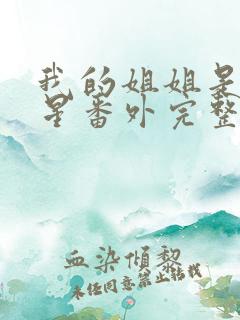 我的姐姐是
星番外完整
血染倾黎
未经同意禁止转载